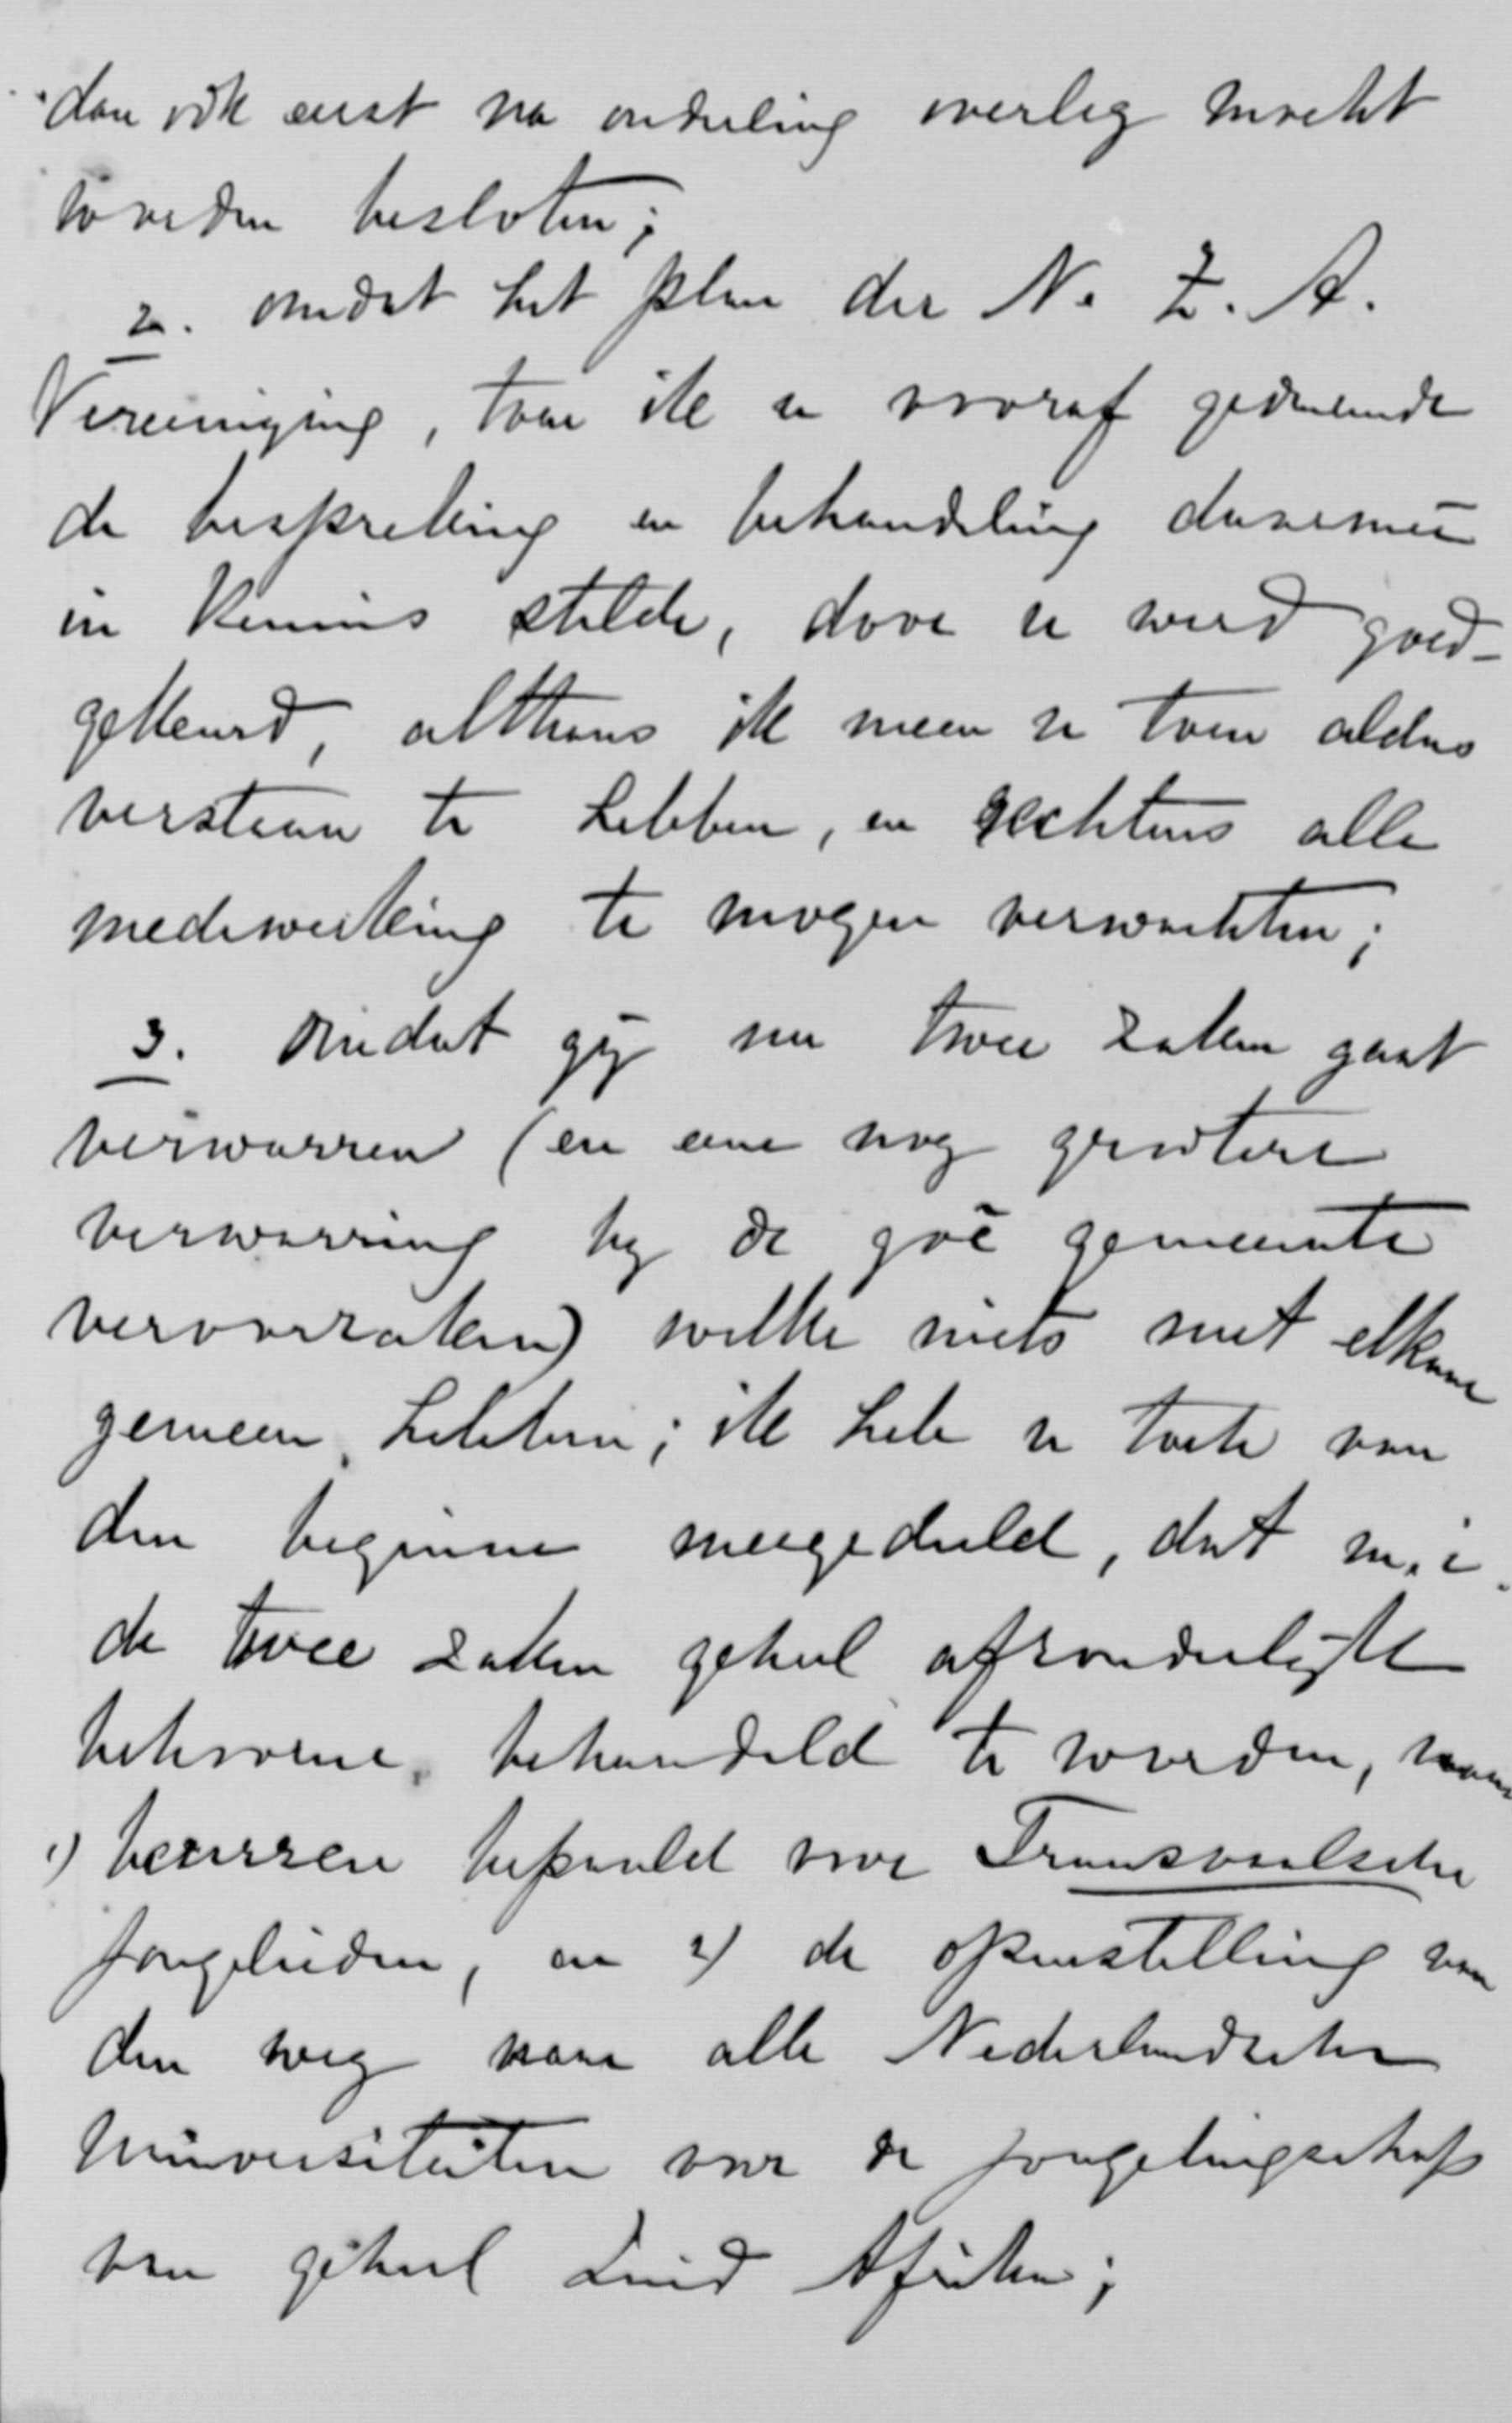 dan ook eerst na onderling overleg mocht
worden besloten;
2. omdat het plan der N. Z. A.
Vereeniging, toen ik u vooraf gedurende
de bespreking en behandeling daarmeê
in kennis stelde, door u werd goed-
gekeurd, althans ik meen u toen aldus
verstaan te hebben, en rechtens alle
medewerking te mogen verwachten;
3. omdat gij nu twee zaken gaat
verwarren (en eene nog grootere
verwarring bij de goê gemeente
veroorzaken) welke niets met elkaar
gemeen hebben; ik heb u toch van
den beginne meegedeeld, dat m. i.
de twee zaken geheel afzonderlijk
behooren behandeld te worden,
1) beurzen bepaald voor Transvaalsche
jongelieden, en 2) de openstelling van
den weg naar alle Nederlandsche
Universiteiten voor de jongelingschap
van geheel Zuid Afrika;